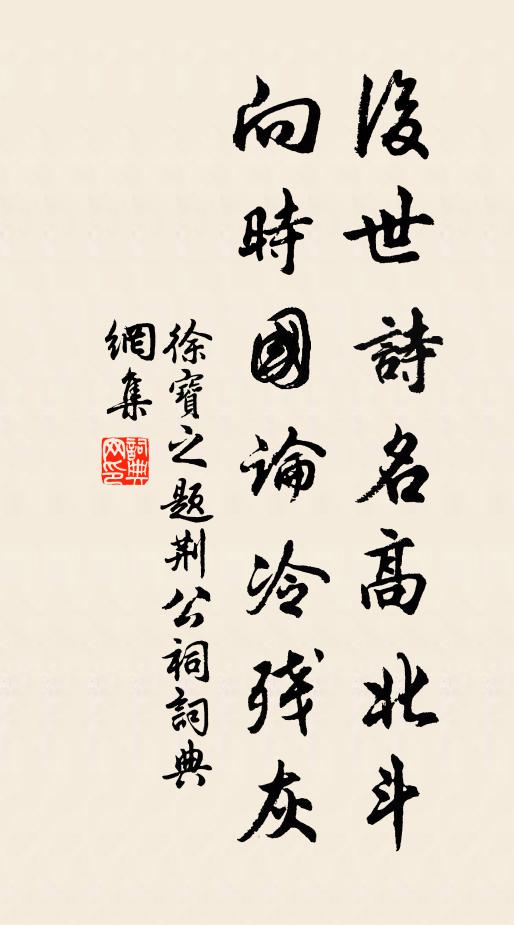 後世詩名高北斗
向時國論冷殘灰
徐寶之題荆公祠詞典
網集
詞典網印